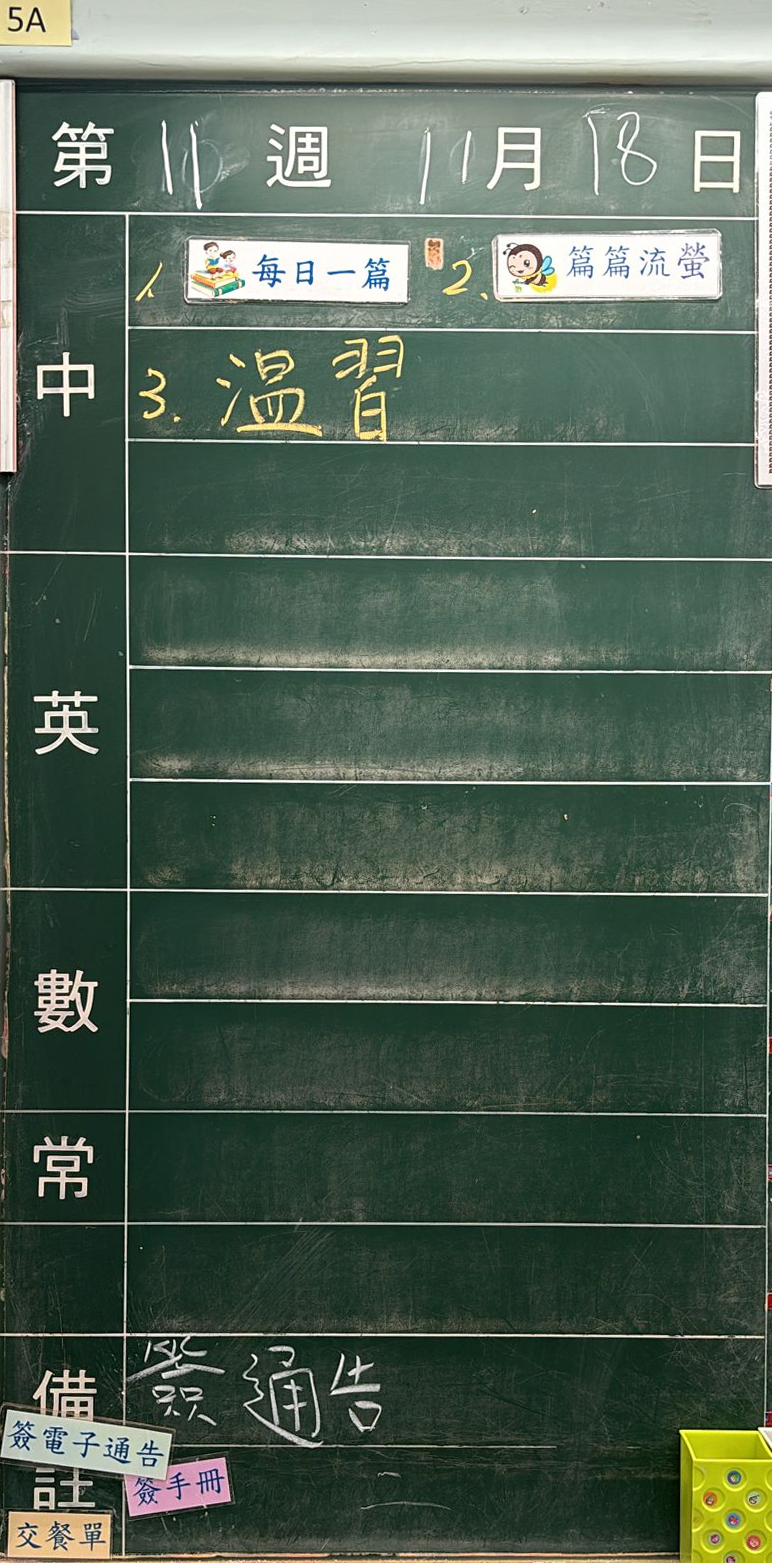 5A
第 11 週 11月 18 日
中
1. 每日一篇 2. 篇篇流螢
3. 溫習
英
數
常
備註
簽通告
簽電子通告
簽手冊
交餐單